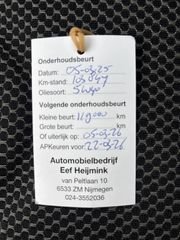 Onderhoudsbeurt
Datum: 05-03-25
Km-stand: 103
Oliesoort:
Volgende onderhoudsbeurt
Kleine beurt: 119000 km
Grote beurt: km
Of uiterlijk op: 05-03-26
APKeuren voor: 22-03-26
Automobielbedrijf
Eef Heijmink
van Peltlaan 10
6533 ZM Nijmegen
024-3552036